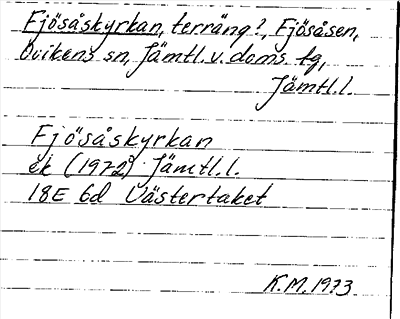 Fjösåskyrkan, terräng?, Fjösåsen,
Ovikens sn, Jämtl.v. doms. tg,
Jämtl.l.
Fjösåskyrkan
ek (1972) Jämtl.l.
18E 6d Västertaket
K.M. 1973